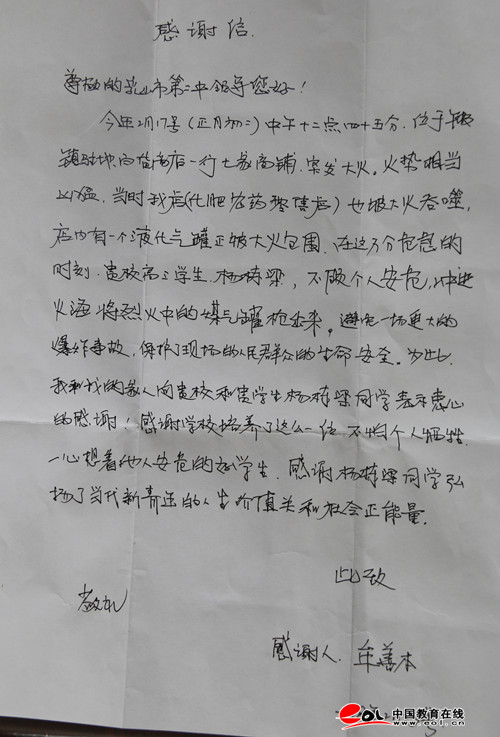 感谢信.
尊敬的乳山市第二中领导您好!
今年2月17号(正月初二)中午十二点四十五分.位于
镇驻地向阳店一行七家商铺.突发大火。火势相当
凶猛.当时我店(化肥农药零售店)也被大火吞噬,
店内有一个液化气罐正被大火包围.在这万分危急的
时刻.贵校高三学生.杨栋梁,不顾个人安危,冲进
火海将烈火中的煤气罐枪出来。避免一场更大的
爆炸事故,保护了现场的人民群众的生命安全。为此
我和我的家人向贵校和贵学生杨栋梁同学表示衷心
的感谢!感谢学校培养了这么一位.不怕个人牺牲.
一心想着他人安危的好学生.感谢杨栋梁同学弘
扬了当代新青年的人生价值关和社会正能量.
此致
敬礼
感谢人.牟善本
EOL 中国教育在线
www.eol.cn